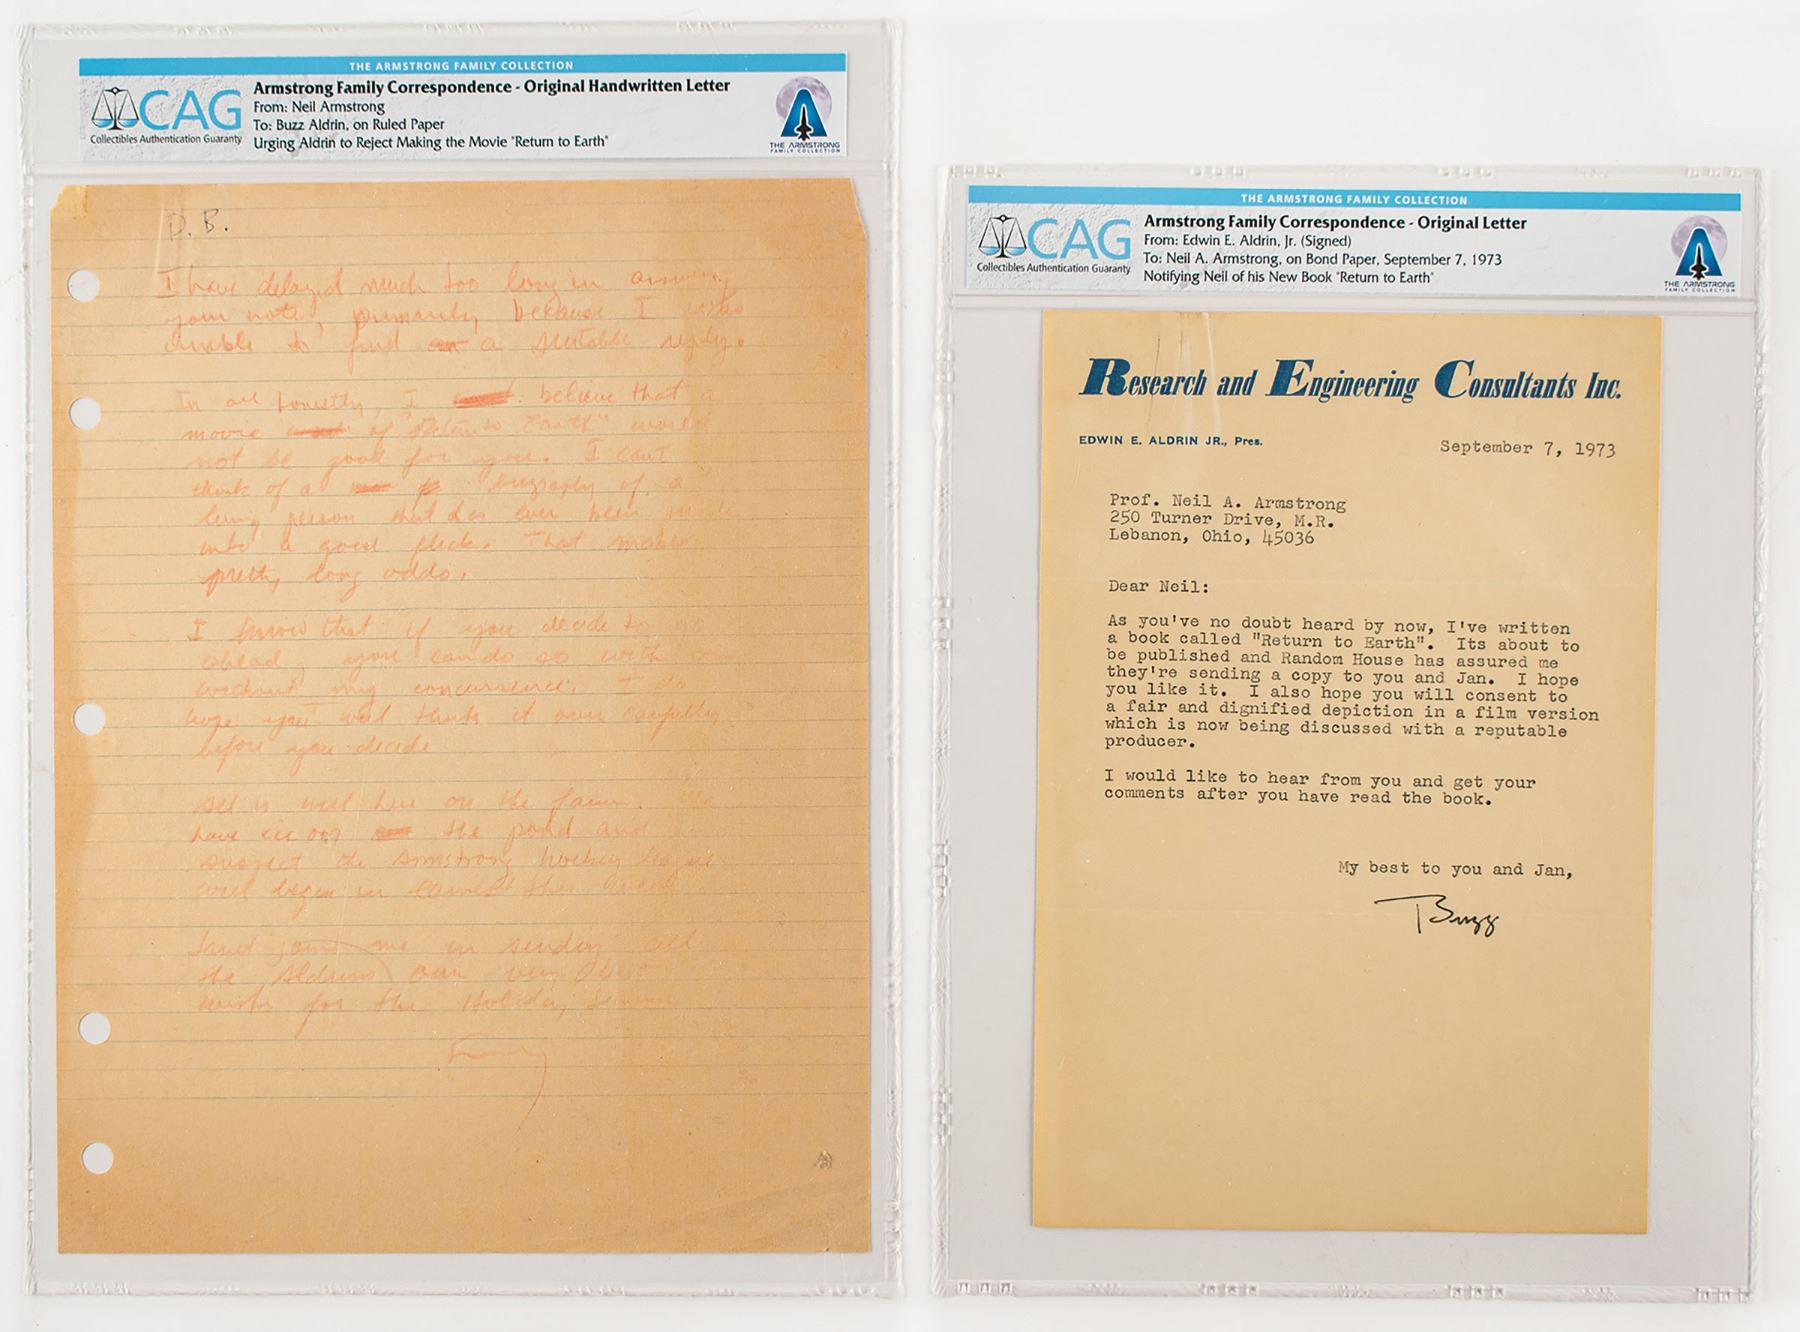 THE ARMSTRONG FAMILY COLLECTION
CAG
Collectibles Authentication Guaranty
Armstrong Family Correspondence - Original Handwritten Letter
From: Neil Armstrong
To: Buzz Aldrin, on Ruled Paper
Urging Aldrin to Reject Making the Movie "Return to Earth"
THE ARMSTRONG
FAMILY COLLECTION
D. B.
I have delayed much too long in answering
your note, primarily because I was
unable to find a suitable reply.
In all honesty, I believe that a
movie of "Return to Earth" would
not be good for you. I can't
think of a biography of a
living person that has ever been made
into a good flick. That makes
pretty long odds.
I know that if you decide to go
ahead, you can do so with or
without my concurrence. I do
hope you will think it over carefully
before you decide
All is well here on the farm. We
have ice on the pond and
suspect the Armstrong hockey league
will begin in earnest this week
Janet joins me in sending all
the Aldrins our very best
wishes for the Holiday Season
THE ARMSTRONG FAMILY COLLECTION
CAG
Collectibles Authentication Guaranty
Armstrong Family Correspondence - Original Letter
From: Edwin E. Aldrin, Jr. (Signed)
To: Neil A. Armstrong, on Bond Paper, September 7, 1973
Notifying Neil of his New Book "Return to Earth"
THE ARMSTRONG
FAMILY COLLECTION
Research and Engineering Consultants Inc.
EDWIN E. ALDRIN JR., Pres.
September 7, 1973
Prof. Neil A. Armstrong
250 Turner Drive, M.R.
Lebanon, Ohio, 45036
Dear Neil:
As you've no doubt heard by now, I've written
a book called "Return to Earth". Its about to
be published and Random House has assured me
they're sending a copy to you and Jan. I hope
you like it. I also hope you will consent to
a fair and dignified depiction in a film version
which is now being discussed with a reputable
producer.
I would like to hear from you and get your
comments after you have read the book.
My best to you and Jan,
Buzz